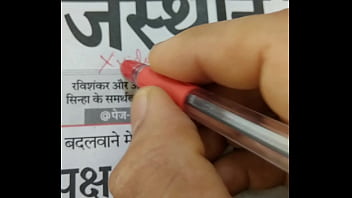 जस्थान
रविशंकर और
सिन्हा के समर्थ
@पेज-
बदलवाने में
पक्ष